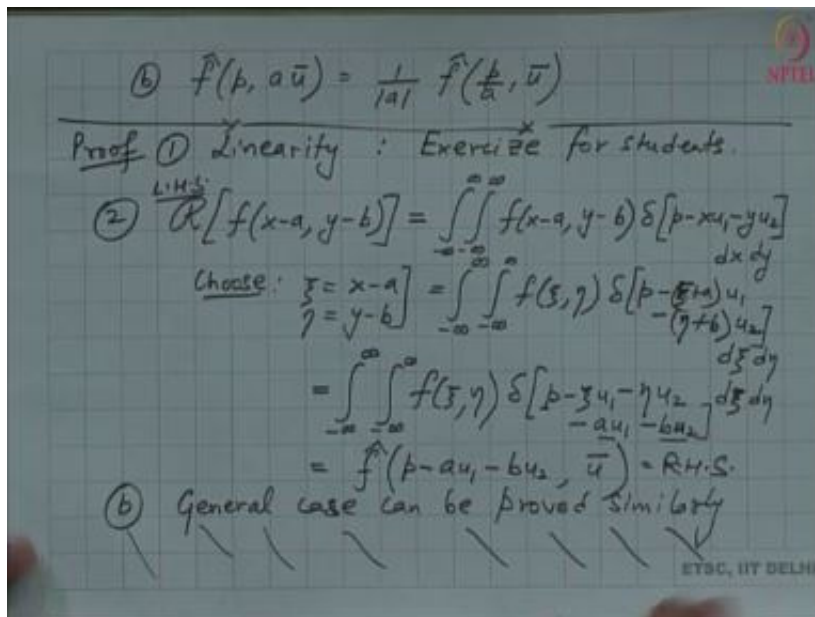 NPTEL
ⓑ f̂(p, aū) = 1/|a| f̂(p/a, ū)
Proof ① Linearity : Exercize for students.
L.H.S.
② R[f(x-a, y-b)] = ∫_{-∞}^{∞} ∫_{-∞}^{∞} f(x-a, y-b) δ[p-xu₁-yu₂] dx dy
Choose: ξ = x-a, η = y-b] = ∫_{-∞}^{∞} ∫_{-∞}^{∞} f(ξ,η) δ[p-(ξ+a)u₁ -(η+b)u₂] dξ dη
= ∫_{-∞}^{∞} ∫_{-∞}^{∞} f(ξ,η) δ[p-ξu₁-ηu₂ -au₁ -bu₂] dξ dη
= f̂(p-au₁-bu₂, ū) = R.H.S.
ⓑ General case can be proved similarly
ETSC, IIT DELHI